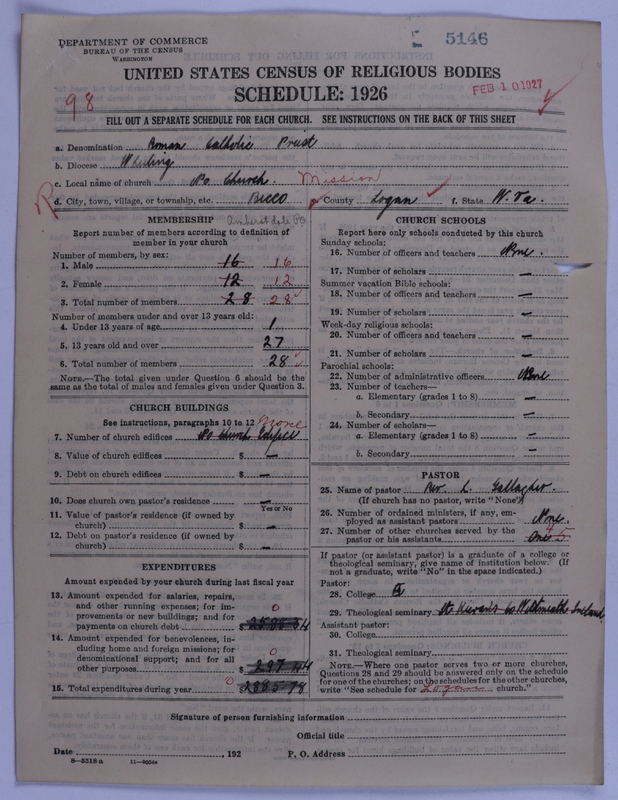 DEPARTMENT OF COMMERCE
BUREAU OF THE CENSUS
WASHINGTON
5146
UNITED STATES CENSUS OF RELIGIOUS BODIES
SCHEDULE: 1926
FEB 10 1927
98
FILL OUT A SEPARATE SCHEDULE FOR EACH CHURCH. SEE INSTRUCTIONS ON THE BACK OF THIS SHEET
a. Denomination Roman Catholic Priest
b. Diocese Wheeling
c. Local name of church No Church. Mission
R
d. City, town, village, or township, etc. BECCO e. County Logan f. State W. Va.
MEMBERSHIP Amherstdale PO
Report number of members according to definition of
member in your church
Number of members, by sex:
1. Male 16 16
2. Female 12 12
3. Total number of members 28 28
Number of members under and over 13 years old:
4. Under 13 years of age 1
5. 13 years old and over 27
6. Total number of members 28
NOTE.—The total given under Question 6 should be the
same as the total of males and females given under Question 3.
CHURCH BUILDINGS
See instructions, paragraphs 10 to 12 None
7. Number of church edifices No Church Edifice
8. Value of church edifices $ —
9. Debt on church edifices $ —
10. Does church own pastor's residence —
Yes or No
11. Value of pastor's residence (if owned by
church) $ —
12. Debt on pastor's residence (if owned by
church) $ —
EXPENDITURES
Amount expended by your church during last fiscal year
13. Amount expended for salaries, repairs,
and other running expenses; for im-
provements or new buildings; and for 0
payments on church debt $
14. Amount expended for benevolences, in-
cluding home and foreign missions; for
denominational support; and for all 0
other purposes $ 297 44
15. Total expenditures during year 0 $
CHURCH SCHOOLS
Report here only schools conducted by this church
Sunday schools:
16. Number of officers and teachers None.
17. Number of scholars —
Summer vacation Bible schools:
18. Number of officers and teachers —
19. Number of scholars —
Week-day religious schools:
20. Number of officers and teachers —
21. Number of scholars —
Parochial schools:
22. Number of administrative officers None
23. Number of teachers—
a. Elementary (grades 1 to 8) —
b. Secondary —
24. Number of scholars—
a. Elementary (grades 1 to 8) —
b. Secondary —
PASTOR
25. Name of pastor Rev. L. Gallagher.
(If church has no pastor, write "None")
26. Number of ordained ministers, if any, em-
ployed as assistant pastors None.
27. Number of other churches served by the
pastor or his assistants One 5
If pastor (or assistant pastor) is a graduate of a college or
theological seminary, give name of institution below. (If
not a graduate, write "No" in the space indicated.)
Pastor:
28. College
29. Theological seminary Co Westmeath Ireland
Assistant pastor:
30. College
31. Theological seminary
NOTE.—Where one pastor serves two or more churches,
Questions 28 and 29 should be answered only on the schedule
for one of the churches; on the schedules for the other churches,
write "See schedule for church."
Signature of person furnishing information
Official title
Date , 192 P. O. Address
8—5518 a 11—9554a